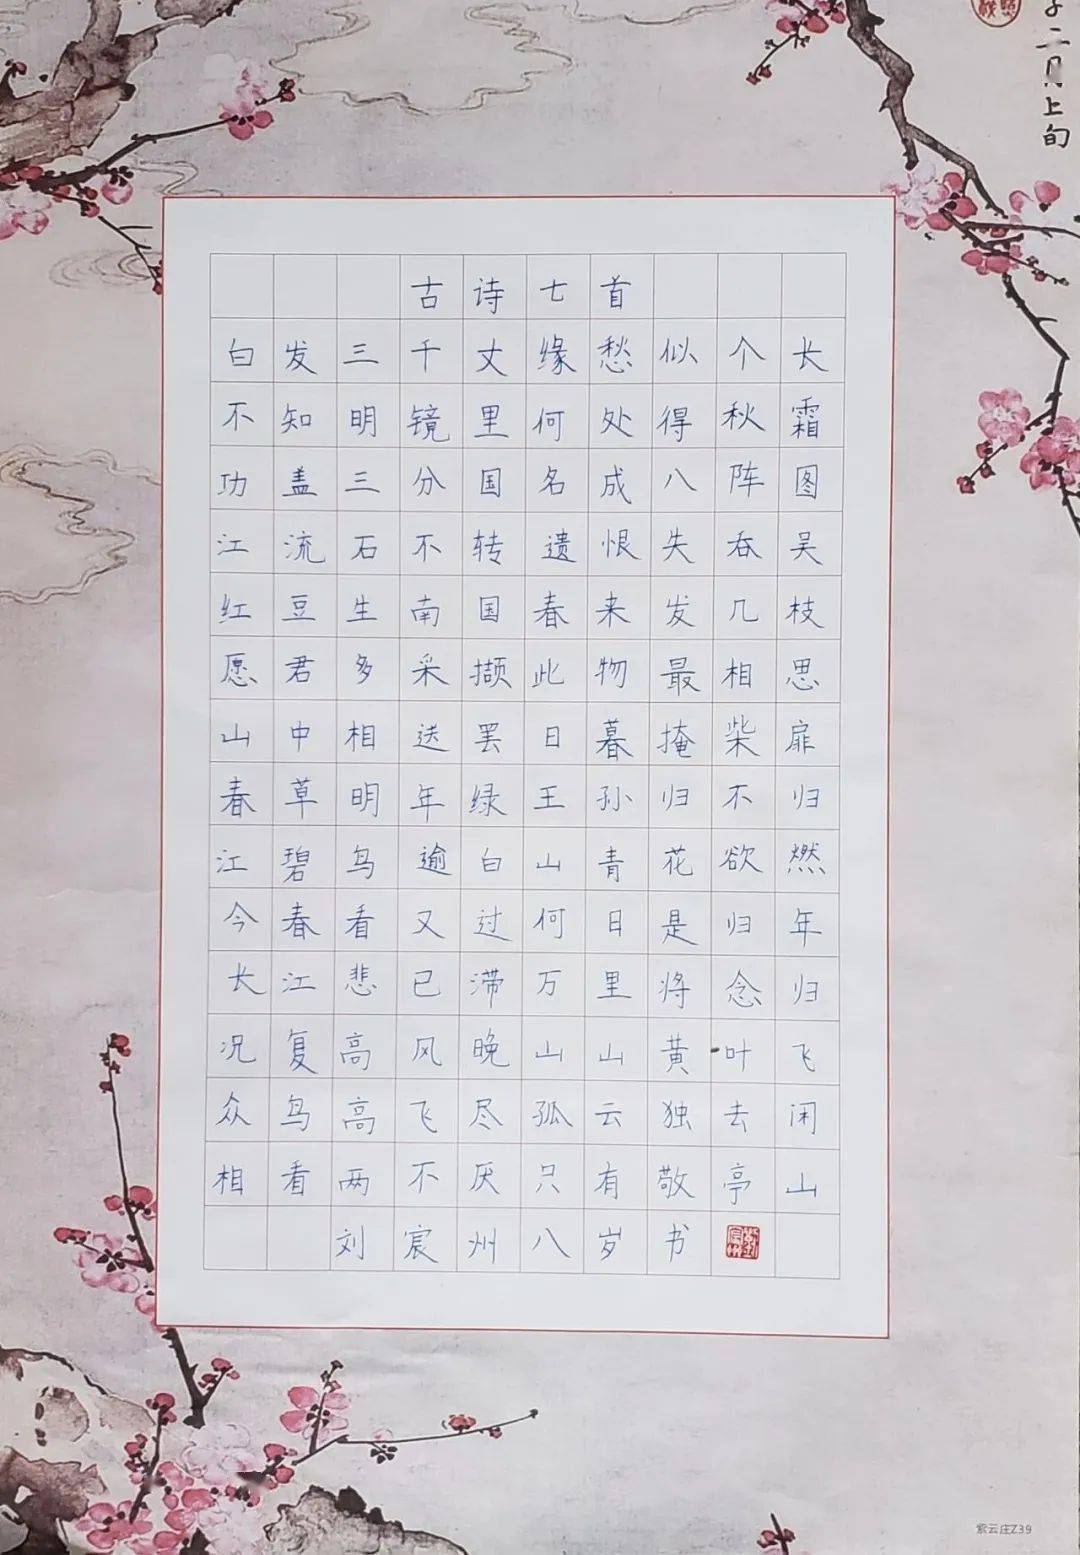 二月上旬
古诗七首
白发三千丈缘愁似个长
不知明镜里何处得秋霜
功盖三分国名成八阵图
江流石不转遗恨失吞吴
红豆生南国春来发几枝
愿君多采撷此物最相思
山中相送罢日暮掩柴扉
春草明年绿王孙归不归
江碧鸟逾白山青花欲燃
今春看又过何日是归年
长江悲已滞万里将念归
况复高风晚山山黄叶飞
众鸟高飞尽孤云独去闲
相看两不厌只有敬亭山
刘宸州八岁书
紫云庄Z39